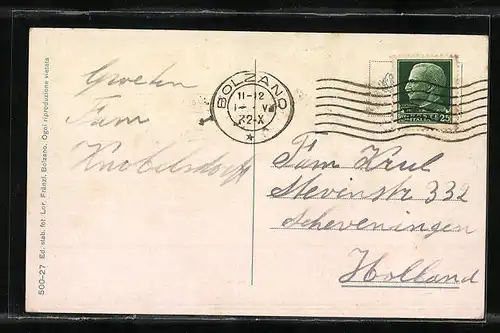 500-27 Ed. stab. fot. Lor. Fränzl, Bolzano. Ogni riproduzione vietata
Groeten
Fam
Knobelsdorff
BOLZANO
11-12
V
32-X
25
Fam Krul
Stevinstr 332
Scheveningen
Holland